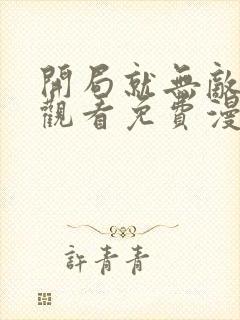 開局就無敵
觀看免費漫
許青青